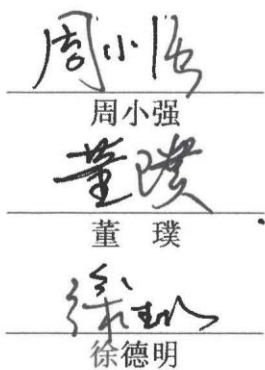 周小强
周小强
董璞
董　璞
徐德明
徐德明